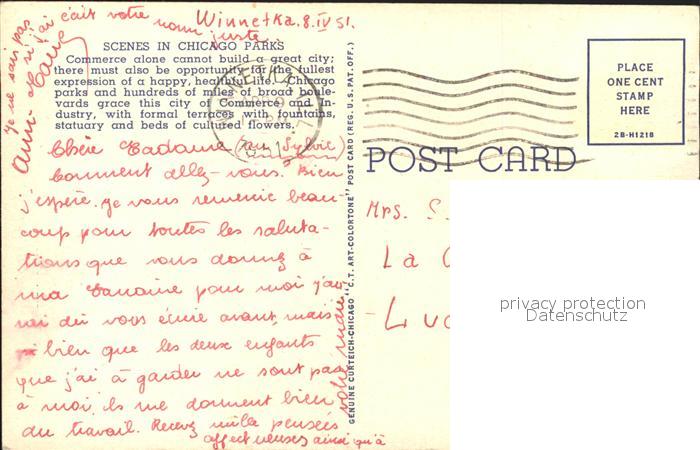 Winnetka. 8. IV 51.
SCENES IN CHICAGO PARKS
Commerce alone cannot build a great city;
there must also be opportunity for the fullest
expression of a happy, healthful life. Chicago
parks and hundreds of miles of broad boule-
vards grace this city of Commerce and In-
dustry, with formal terraces with fountains,
statuary and beds of cultured flowers.
Chère Madame (ou Sylvie)
Comment allez-vous. Bien
j'espère. je vous remercie beau-
coup pour toutes les saluta-
tions que vous donnez à
ma maman pour moi j'au-
rai dû vous écrire avant, mais
si bien que les deux enfants
que j'ai à garder ne sont pas
à moi, ils me donnent bien
du travail. Recevez mille pensées
affectueuses ainsi qu'à
votre mari.
je ne sais pas
si j'ai écrit votre nom juste
GENUINE CURTEICH-CHICAGO "C.T. ART-COLORTONE" POST CARD (REG. U.S. PAT. OFF.)
POST CARD
PLACE
ONE CENT
STAMP
HERE
2B-H1218
Mrs. S.
La
privacy protection
Datenschutz